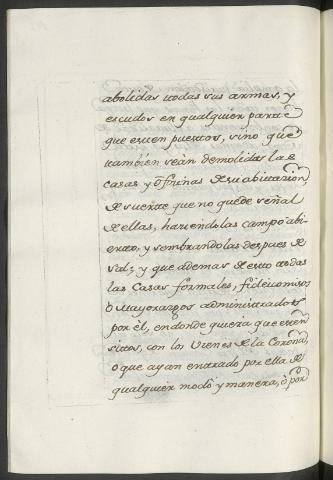 abolidas todas sus armas, y
escudos en qualquier parte
que esten puestos, sino que
tambien sean demolidas las
casas y ofisinas de su abitacion,
de suerte que no quede señal
de ellas, haciendolas campo abi-
erto, y sembrandolas despues de
sal; y que ademas de esto todas
las Casas formales, fideicomisos
ò Mayorazgos administrados
por él, en donde quiera que esten
sitos, con los Vienes de la Corona,
o que ayan entrado por ella de
qualquier modo y manera, ò por